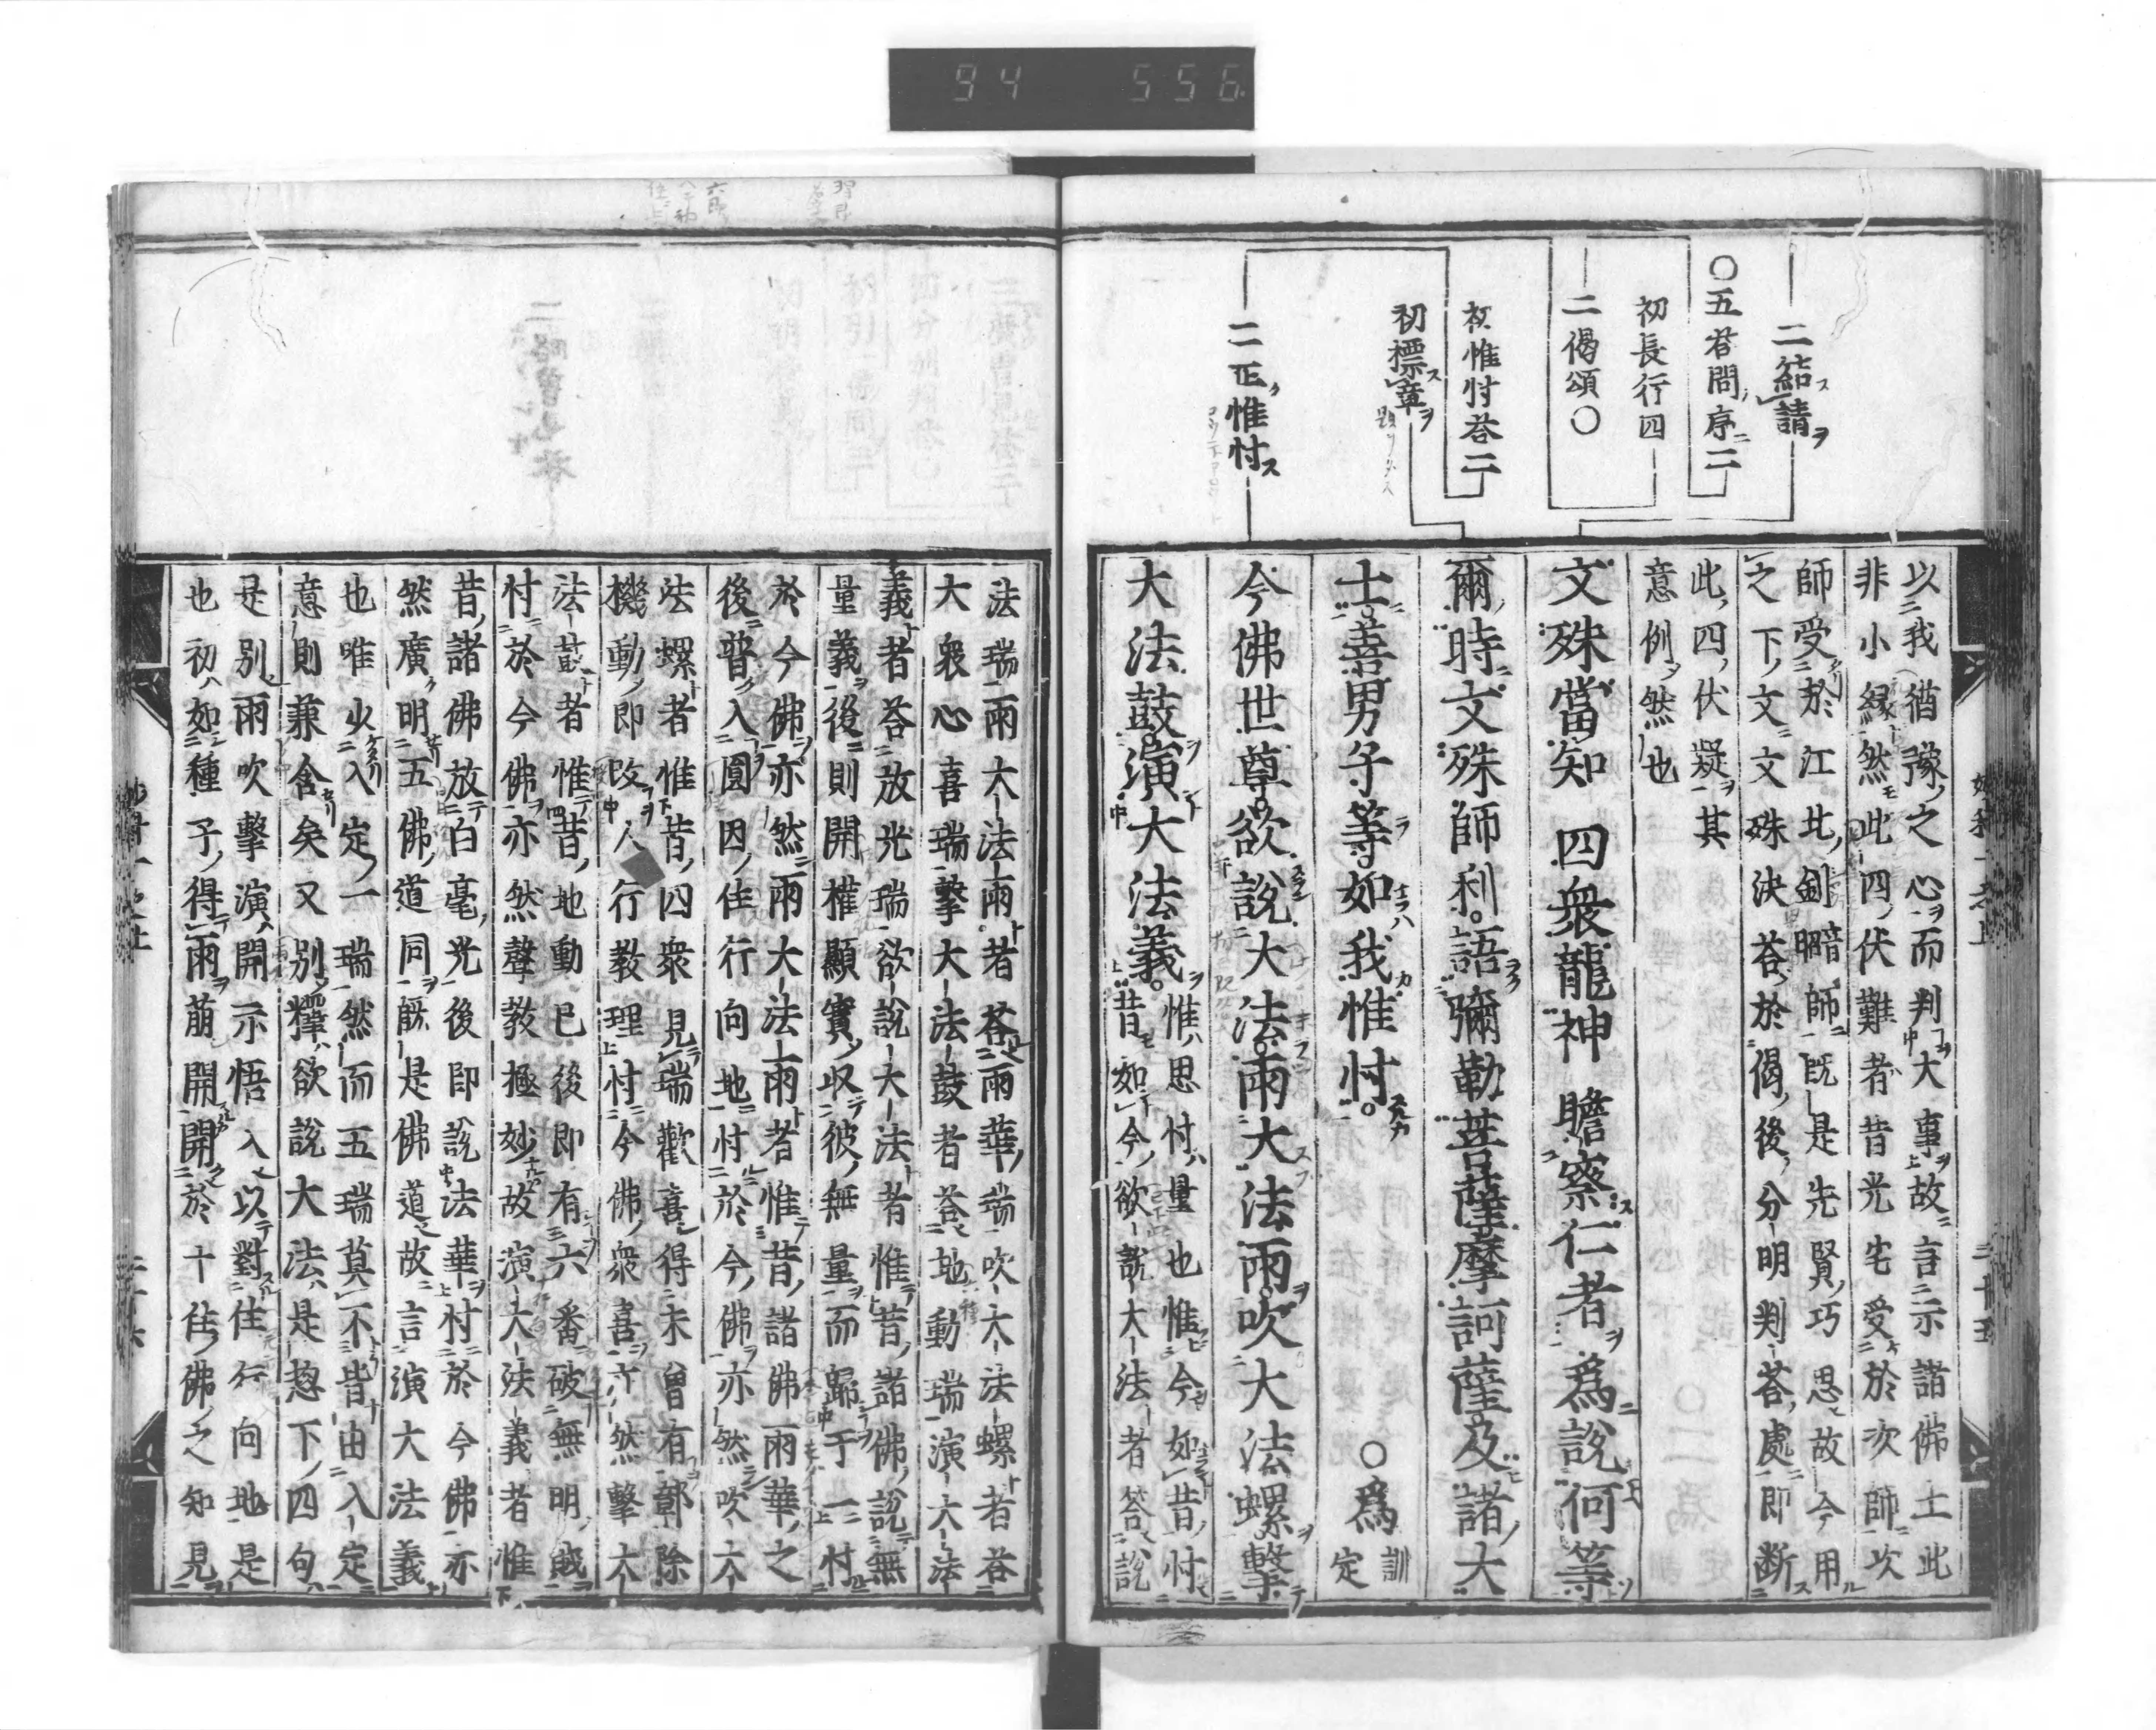 94 556
二結請
○五答問序二
初長行四
二偈頌○
初惟忖答二
初標章
二正惟忖
以我猶豫之心而判大事故言示諸佛土此
非小緣然此四伏難者昔光宅受於次師次
師受於江北釧師既是先賢巧思故今用
之下文文殊決答於偈後分明判答處即斷
此四伏疑其
意例然也
文殊當知四衆龍神瞻察仁者爲說何等
爾時文殊師利語彌勒菩薩摩訶薩及諸大
士善男子等如我惟忖○爲訓定
今佛世尊欲說大法雨大法雨吹大法螺擊
大法鼓演大法義惟思忖量也惟今如昔忖
昔如今欲說大法者答說
法瑞雨大法雨者答雨華瑞吹大法螺者答
大衆心喜瑞擊大法鼓者答地動瑞演大法
義者答放光瑞欲說大法者惟昔諸佛說無
量義後則開權顯實收彼無量而歸于一忖
於今佛亦然雨大法雨者惟昔諸佛雨華之
後普入圓因住行向地忖於今佛亦然吹大
法螺者惟昔四衆見瑞歡喜得未曾有鄣除
機動即改人行教理忖今佛衆喜亦然擊大
法鼓者惟昔地動已後即有六番破無明賊
忖於今佛亦然聲教極妙故演大法義者惟
昔諸佛放白毫光後即說法華忖於今佛亦
然廣明五佛道同既是佛道故言演大法義
也唯以入定一瑞然而五瑞莫不皆由入定
意則兼含矣又別釋欲說大法是惣下四句
是別雨吹擊演開示悟入以對住行向地是
也初如種子得雨萠開開於十住佛之知見